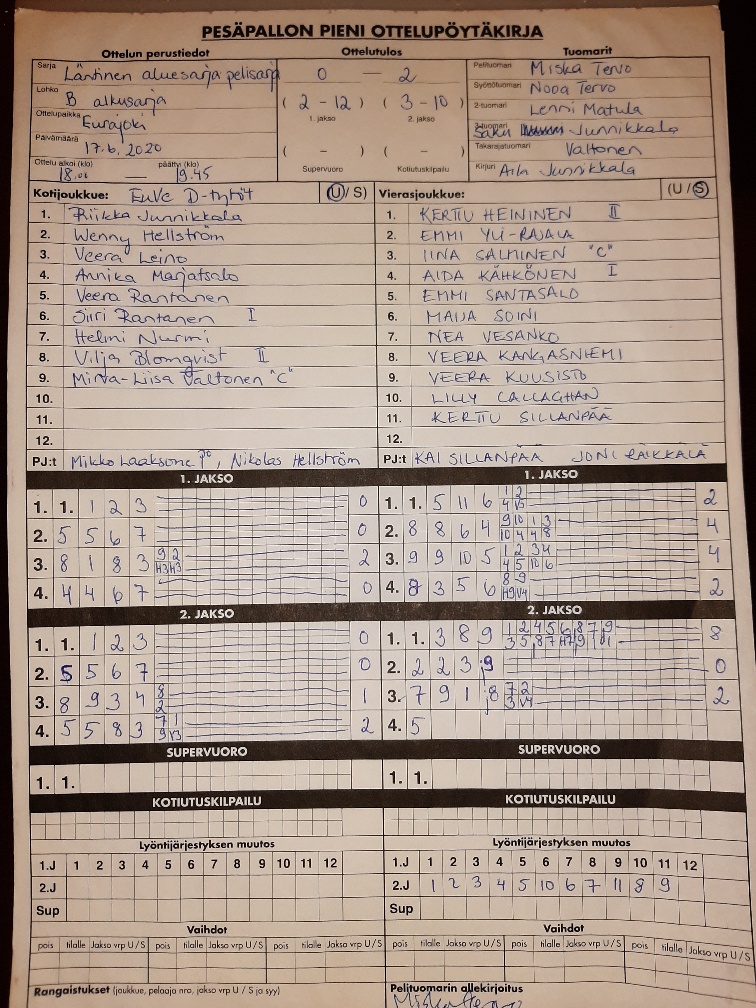 PESÄPALLON PIENI OTTELUPÖYTÄKIRJA
Ottelun perustiedot Ottelutulos Tuomarit
Sarja Läntinen aluesarja pelisarja 0 — 2 Pelituomari Miska Tervo
Lohko B alkusarja (2 - 12) (3 - 10) Syöttötuomari Nooa Tervo
Ottelupaikka Eurajoki 1. jakso 2. jakso 2-tuomari Lenni Matula
Päivämäärä 17.6.2020 ( - ) ( - ) 3-tuomari Saku Junnikkala
Takarajatuomari Valtonen
Ottelu alkoi (klo) 18.00 — päättyi (klo) 19.45 Supervuoro Kotiutuskilpailu Kirjuri Aila Junnikkala
Kotijoukkue: EuVe D-tytöt (U/S) Vierasjoukkue: (U/S)
1. Riikka Junnikkala 1. KERTTU HEININEN II
2. Wenny Hellström 2. EMMI YLI-RAJALA
3. Veera Leino 3. IINA SALMINEN "C"
4. Annika Marjatsalo 4. AIDA KÄHKÖNEN I
5. Veera Rantanen 5. EMMI SANTASALO
6. Siiri Rantanen I 6. MAIJA SOINI
7. Helmi Nurmi 7. NEA VESANKO
8. Vilja Blomqvist II 8. VEERA KANGASNIEMI
9. Minta-Liisa Valtonen "C" 9. VEERA KUUSISTO
10. 10. LILLY CALLAGHAN
11. 11. KERTTU SILLANPÄÄ
12. 12.
PJ:t Mikko Laaksone, Nikolas Hellström PJ:t KAI SILLANPÄÄ JONI RÄIKKÄLÄ
1. JAKSO 1. JAKSO
1. 1. 1 2 3 0 1. 1. 5 11 6 1 2 2
4 V5
2. 5 5 6 7 0 2. 8 8 6 4 9 10 1 3 4
10 4 4 8
3. 8 1 8 3 9 2 2 3. 9 9 10 5 1 2 3 4 4
H3 H3 4 5 10 6
4. 4 4 6 7 0 4. 8 3 5 6 8 9 2
H9 V4
2. JAKSO 2. JAKSO
1. 1. 1 2 3 0 1. 1. 3 8 9 1 2 4 5 6 8 7 9 8
2. 5 5 6 7 0 2. 2 2 3 9 0
3. 8 9 3 4 8 1 3. 7 9 1 8 7 2 2
2 3 V4
4. 5 5 8 3 7 1 2 4. 5
9 V3
SUPERVUORO SUPERVUORO
1. 1. 1. 1.
KOTIUTUSKILPAILU KOTIUTUSKILPAILU
Lyöntijärjestyksen muutos Lyöntijärjestyksen muutos
1.J 1 2 3 4 5 6 7 8 9 10 11 12 1.J 1 2 3 4 5 6 7 8 9 10 11 12
2.J 2.J 1 2 3 4 5 10 6 7 11 8 9
Sup Sup
Vaihdot Vaihdot
pois tilalle Jakso vrp U/S pois tilalle Jakso vrp U/S pois tilalle Jakso vrp U/S pois tilalle Jakso vrp U/S pois tilalle Jakso vrp U/S pois tilalle Jakso vrp U/S
Rangaistukset (joukkue, pelaaja nro, jakso vrp U / S ja syy) Pelituomarin allekirjoitus
Miska Tervo